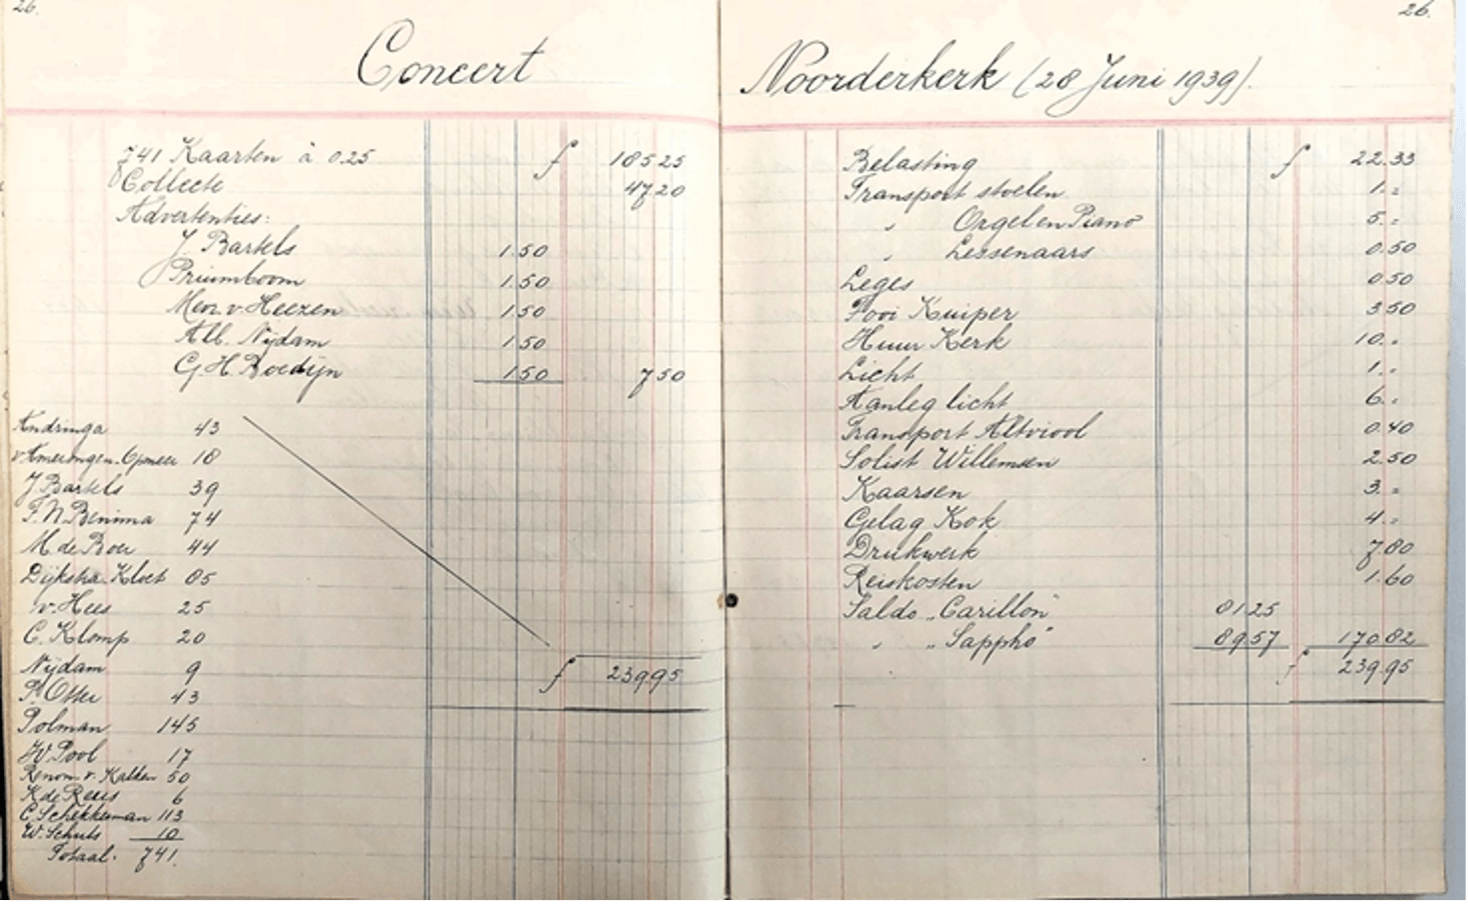 26.
Concert
741 Kaarten à 0.25 f 185 25
Collecte 47 20
Advertenties:
J. Bartels 1.50
Pruimboom 1.50
Mevr. v. Heezen 1.50
Alb. Nijdam 1.50
G.H. Boedijn 1.50 7 50
Andringa 43
v Amerongen-Opmeer 18
J. Bartels 39
F.N. Benima 74
M. de Boer 44
Dijkstra-Kloet 85
v. Hees 25
C. Klomp 20
Nijdam 9
f 239.95
P. Otter 43
Polman 145
W. Pool 17
Renom v. Kalden 50
K de Rees 6
C. Schekkerman 113
W. Schuts 10
Totaal. 741.
26.
Noorderkerk (28 Juni 1939).
Belasting f 22.33
Transport stoelen 1.=
" Orgel en Piano 5.=
" Lessenaars 0.50
Leges 0.50
Fooi Kuiper 3.50
Huur Kerk 10.=
Licht 1.=
Aanleg licht 6.=
Transport Altviool 0.40
Solist Willemsen 2.50
Kaarsen 3.=
Gelag Kok 4.=
Drukwerk 7.80
Reiskosten 1.60
Saldo „Carillon" 81.25
" „Sappho" 89.57 170.82
f 239.95